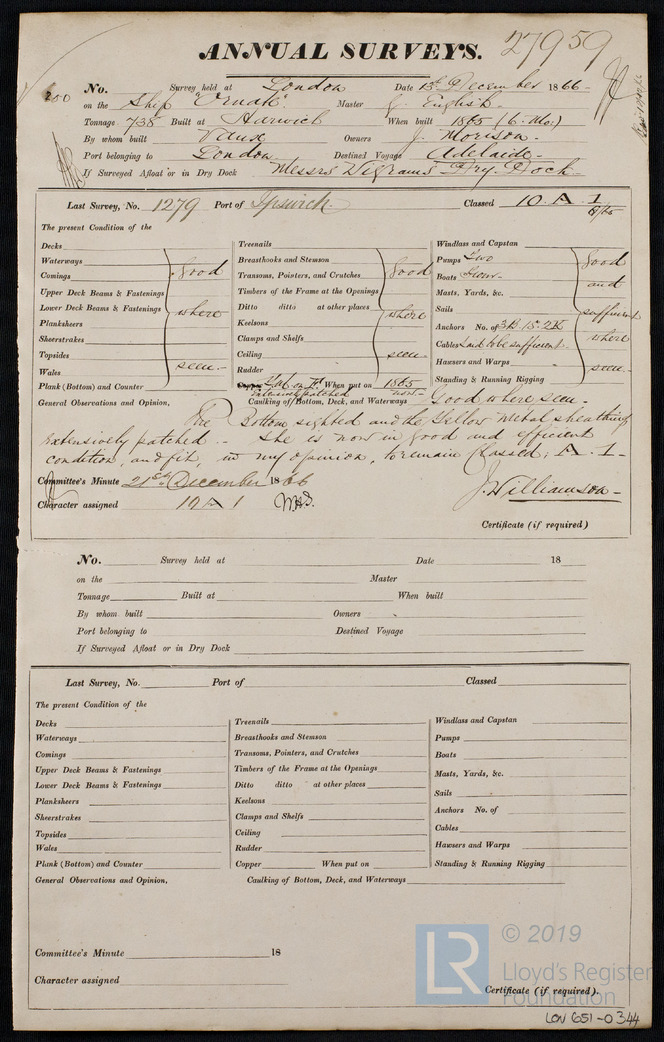 ANNUAL SURVEYS. 27959
No. Survey held at London Date 13th December 1866
on the Ship "Ornate" Master J. English
Tonnage 738 Built at Harwich When built 1865 (6. Mo.)
By whom built Vaux Owners J. Morison
Port belonging to London Destined Voyage Adelaide
If Surveyed Afloat or in Dry Dock Messrs Wigrams Dry Dock
Last Survey, No. 1279 Port of Ipswich Classed 10 A 1
The present Condition of the
Decks
Waterways good
Comings
Upper Deck Beams & Fastenings
Lower Deck Beams & Fastenings where
Planksheers
Sheerstrakes
Topsides
Wales seen
Plank (Bottom) and Counter
Treenails
Breasthooks and Stemson
Transoms, Pointers, and Crutches good
Timbers of the Frame at the Openings
Ditto ditto at other places where
Keelsons
Clamps and Shelfs
Ceiling seen
Rudder
Y.M. on Ft. When put on 1865
extensively patched now
Windlass and Capstan
Pumps Two good
Boats Four and
Masts, Yards, &c.
Sails sufficient
Anchors No. of 3B 1S. 2K
Cables said to be sufficient where
Hawsers and Warps seen
Standing & Running Rigging
General Observations and Opinion, Caulking of Bottom, Deck, and Waterways Good where seen
The Bottom sighted and the Yellow Metal sheathing
extensively patched. She is now in good and efficient
condition, and fit, in my opinion, to remain Classed, A. 1
Committee's Minute 21st December 1866 J. Williamson
Character assigned 10 A 1
Certificate (if required)
No. Survey held at Date 18
on the Master
Tonnage Built at When built
By whom built Owners
Port belonging to Destined Voyage
If Surveyed Afloat or in Dry Dock
Last Survey, No. Port of Classed
The present Condition of the
Decks
Waterways
Comings
Upper Deck Beams & Fastenings
Lower Deck Beams & Fastenings
Planksheers
Sheerstrakes
Topsides
Wales
Plank (Bottom) and Counter
Treenails
Breasthooks and Stemson
Transoms, Pointers, and Crutches
Timbers of the Frame at the Openings
Ditto ditto at other places
Keelsons
Clamps and Shelfs
Ceiling
Rudder
Copper When put on
Windlass and Capstan
Pumps
Boats
Masts, Yards, &c.
Sails
Anchors No. of
Cables
Hawsers and Warps
Standing & Running Rigging
General Observations and Opinion, Caulking of Bottom, Deck, and Waterways
Committee's Minute 18
Character assigned
Certificate (if required).
LR © 2019
Lloyd's Register
Foundation
LON 651-0344